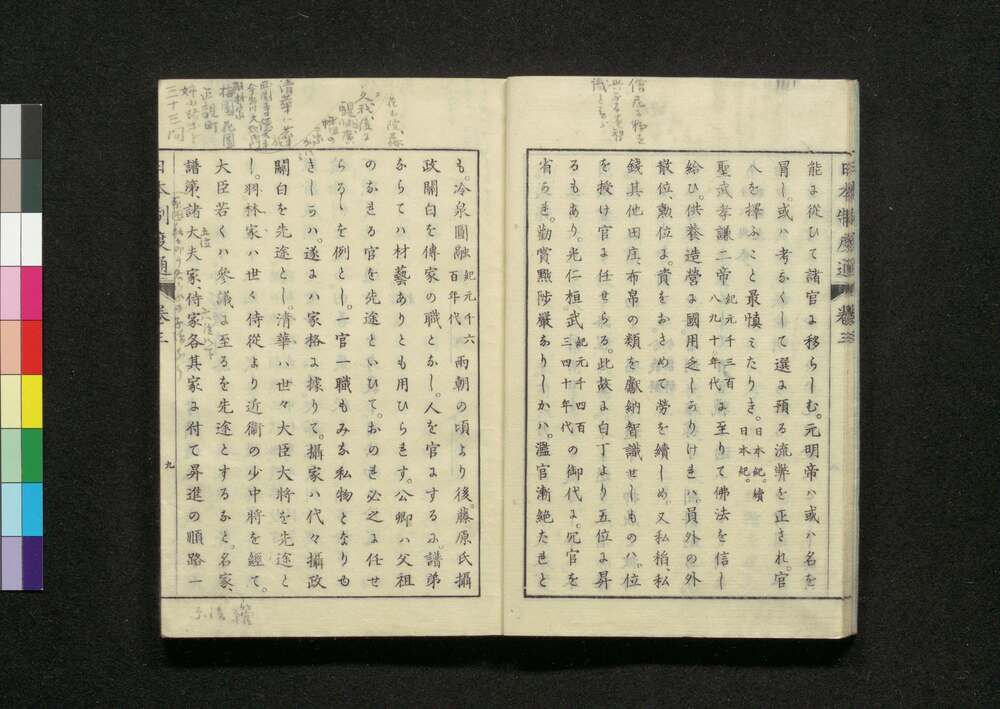 能ゟ從ひて諸官ゟ移らしむ。元明帝ハ或ハ名を
冐し。或ハ考なくして選ゟ預る流弊を正され。官
人を擇ふこと最慎ミたりき。日本紀。續日本紀。
聖武孝謙二帝紀元千三百八九十年代ゟ至りて佛法を信し
給ひ。供養造營ゟ國用乏しかりけれハ。員外の外
散位、勲位ゟ。貲をおさめて勞を續しめ。又私稻、私
錢其他田庄、布帛の類を獻納智識せしものハ。位
を授け官ゟ任せらる。此故ゟ白丁より五位ゟ昇
るもあり。光仁桓武紀元千四百三四十年代の御代ゟ。冗官を
省られ。勸賞黙陟嚴なりしかハ。濫官漸絶たれと
も。冷泉圓融紀元千六百年代兩朝の頃より後。藤原氏攝
政關白を傳家の職とかし。人を官ゟするゟ。譜弟
ならてハ材藝ありとも用ひられす。公卿ハ父祖
のなれる官を先途といひて。おのれ必之ゟ任せ
らるゝを例とし。一官一職もみな私物となりも
きしかハ。遂ゟハ家格ゟ據りて。攝家ハ代々攝政
關白を先途とし清華ハ世々大臣大將を先途と
し。羽林家ハ世々侍從より近衞の少中將を經て。
大臣若くハ參議ゟ至るを先途とするなと。名家、
譜第、諸大夫家、侍家各其家ゟ付て昇進の順路一
日本制度通
卷三
九
三十三間